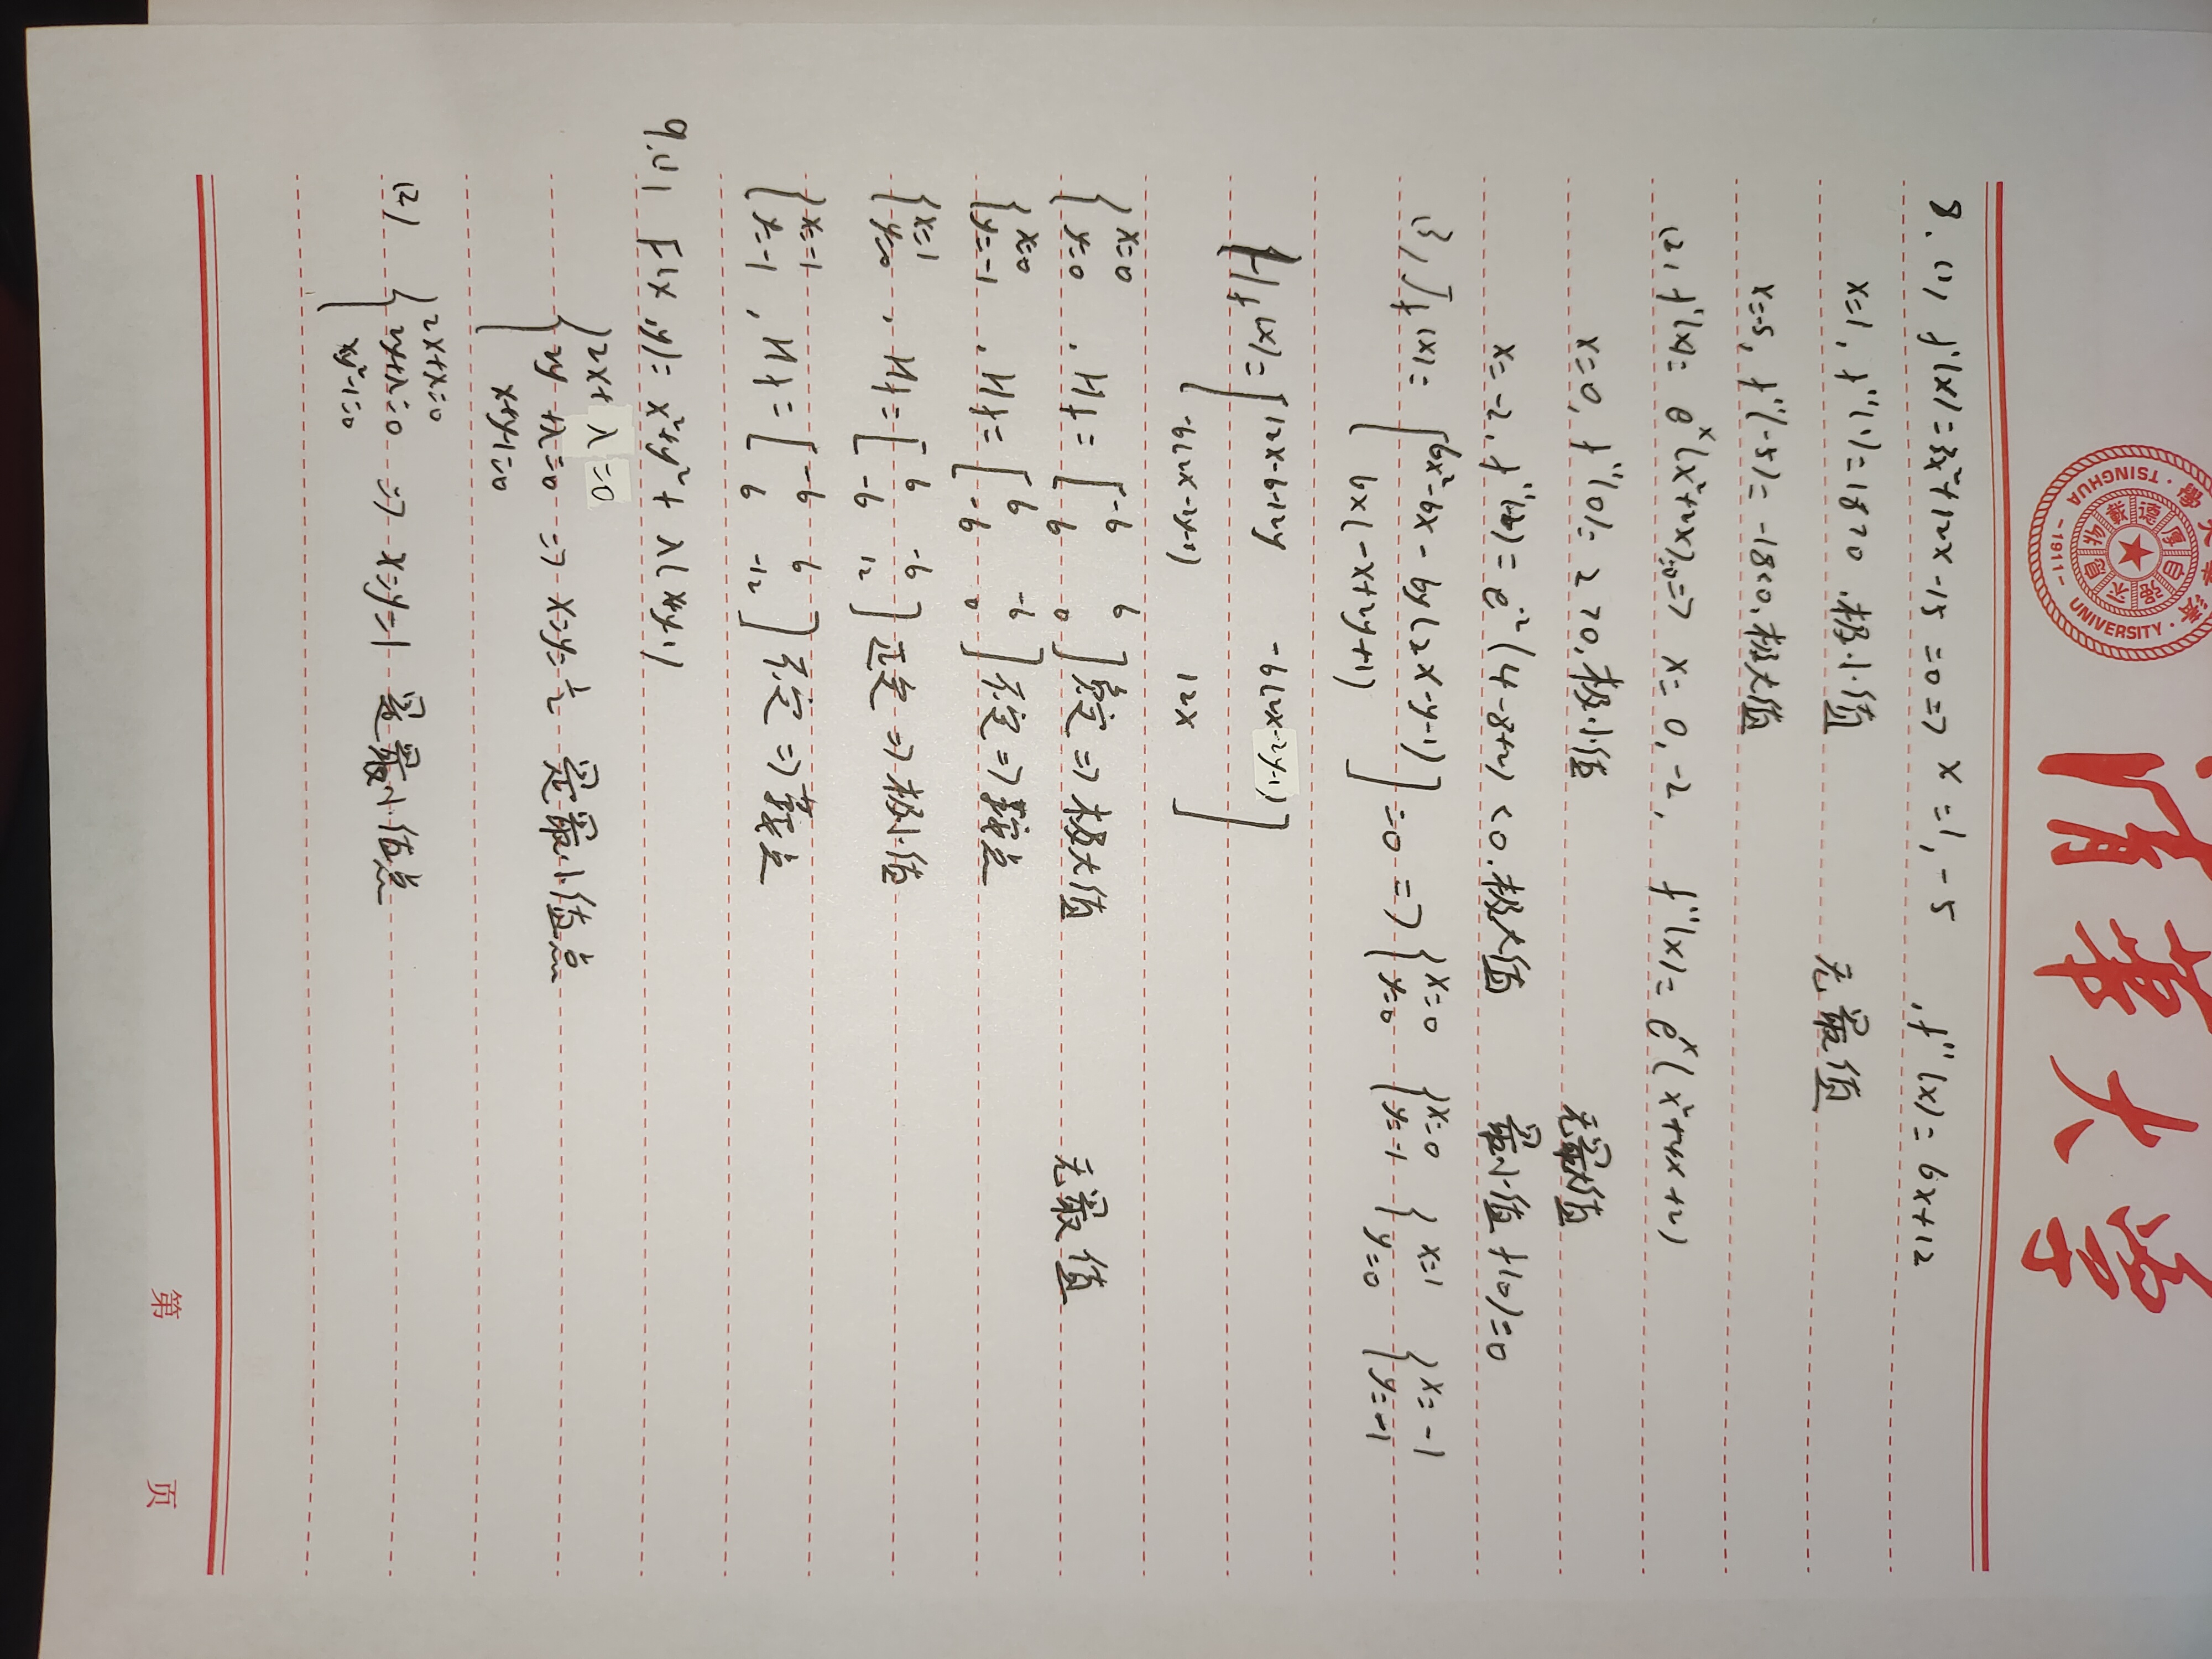 清華大学
TSINGHUA UNIVERSITY
-1911-
自强不息
厚德载物
8. (1) f'(x)=3x²+12x-15=0=> x=1,-5 , f''(x)=6x+12
x=1, f''(1)=18>0 .极小值 无最值
x=-5, f''(-5)=-18<0.极大值
(2) f'(x)= eˣ(x²+2x)=0=> x=0,-2, f''(x)= eˣ(x²+4x+2)
x=0, f''(0)= 2>0.极小值 无最大值
x=-2. f''(-2)= e⁻²(4-8+2)<0.极大值 最小值 f(0)=0
(3) J_f(x)= [6x²-6x-6y(2x-y-1) ; 6x(-x+2y+1)] =0 => {x=0 y=0 {x=0 y=-1 {x=1 y=0 {x=-1 y=-1
H_f(x)= [12x-6-12y -6(2x-2y-1) ; -6(2x-2y-1) 12x]
{x=0 y=0 , H_f= [-6 6 ; 6 0] 负定=>极大值 无最值
{x=0 y=-1 , H_f= [6 -6 ; -6 0] 不定=>鞍点
{x=1 y=0 , H_f= [6 -6 ; -6 12] 正定=>极小值
{x=-1 y=-1 , H_f= [-6 6 ; 6 -12] 不定=>鞍点
9.(1) F(x,y)= x²+y²+λ(x+y-1)
{2x+λ=0
2y+λ=0 => x=y=½ 是最小值点
x+y-1=0
(2) {2x+λ=0
2y+λ=0 => x=y=1 是最小值点
xy²-1=0
第 页